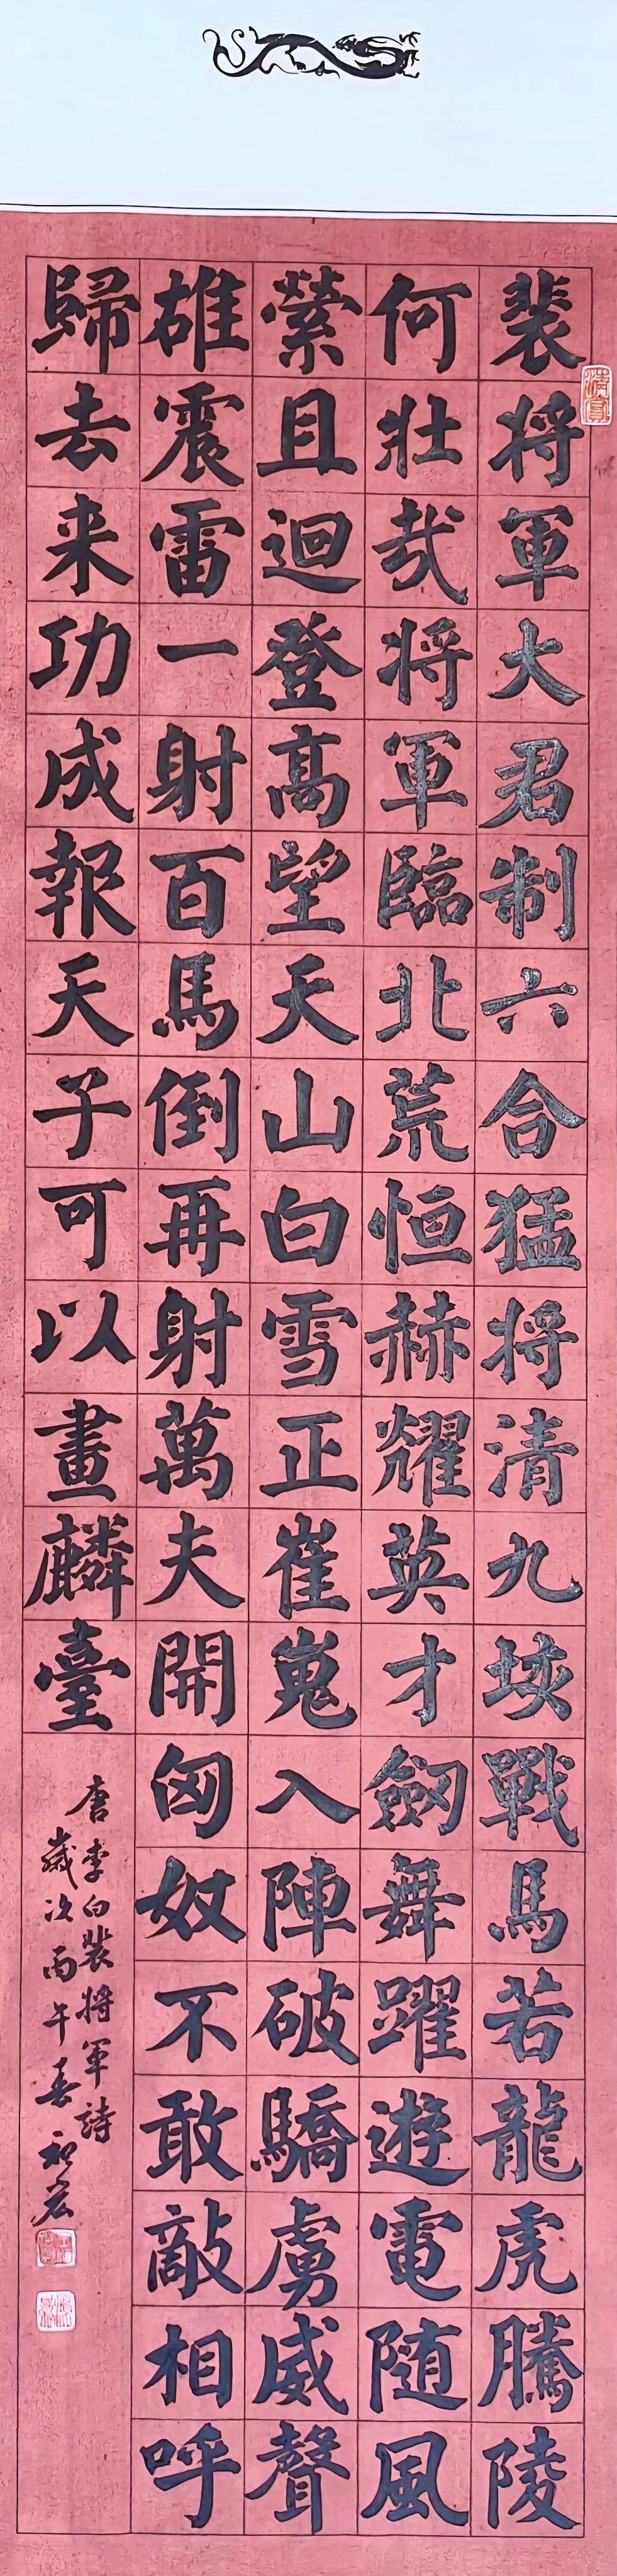 裴将軍大君制六合猛将清九垓戰馬若龍虎騰陵
何壯哉将軍臨北荒恒赫耀英才劒舞躍遊電随風
縈且迴登高望天山白雪正崔嵬入陣破驕虜威聲
雄震雷一射百馬倒再射萬夫開匈奴不敢敵相呼
歸去来功成報天子可以畫麟臺
唐李白裴将軍詩
歲次丙午春初宏
清賞